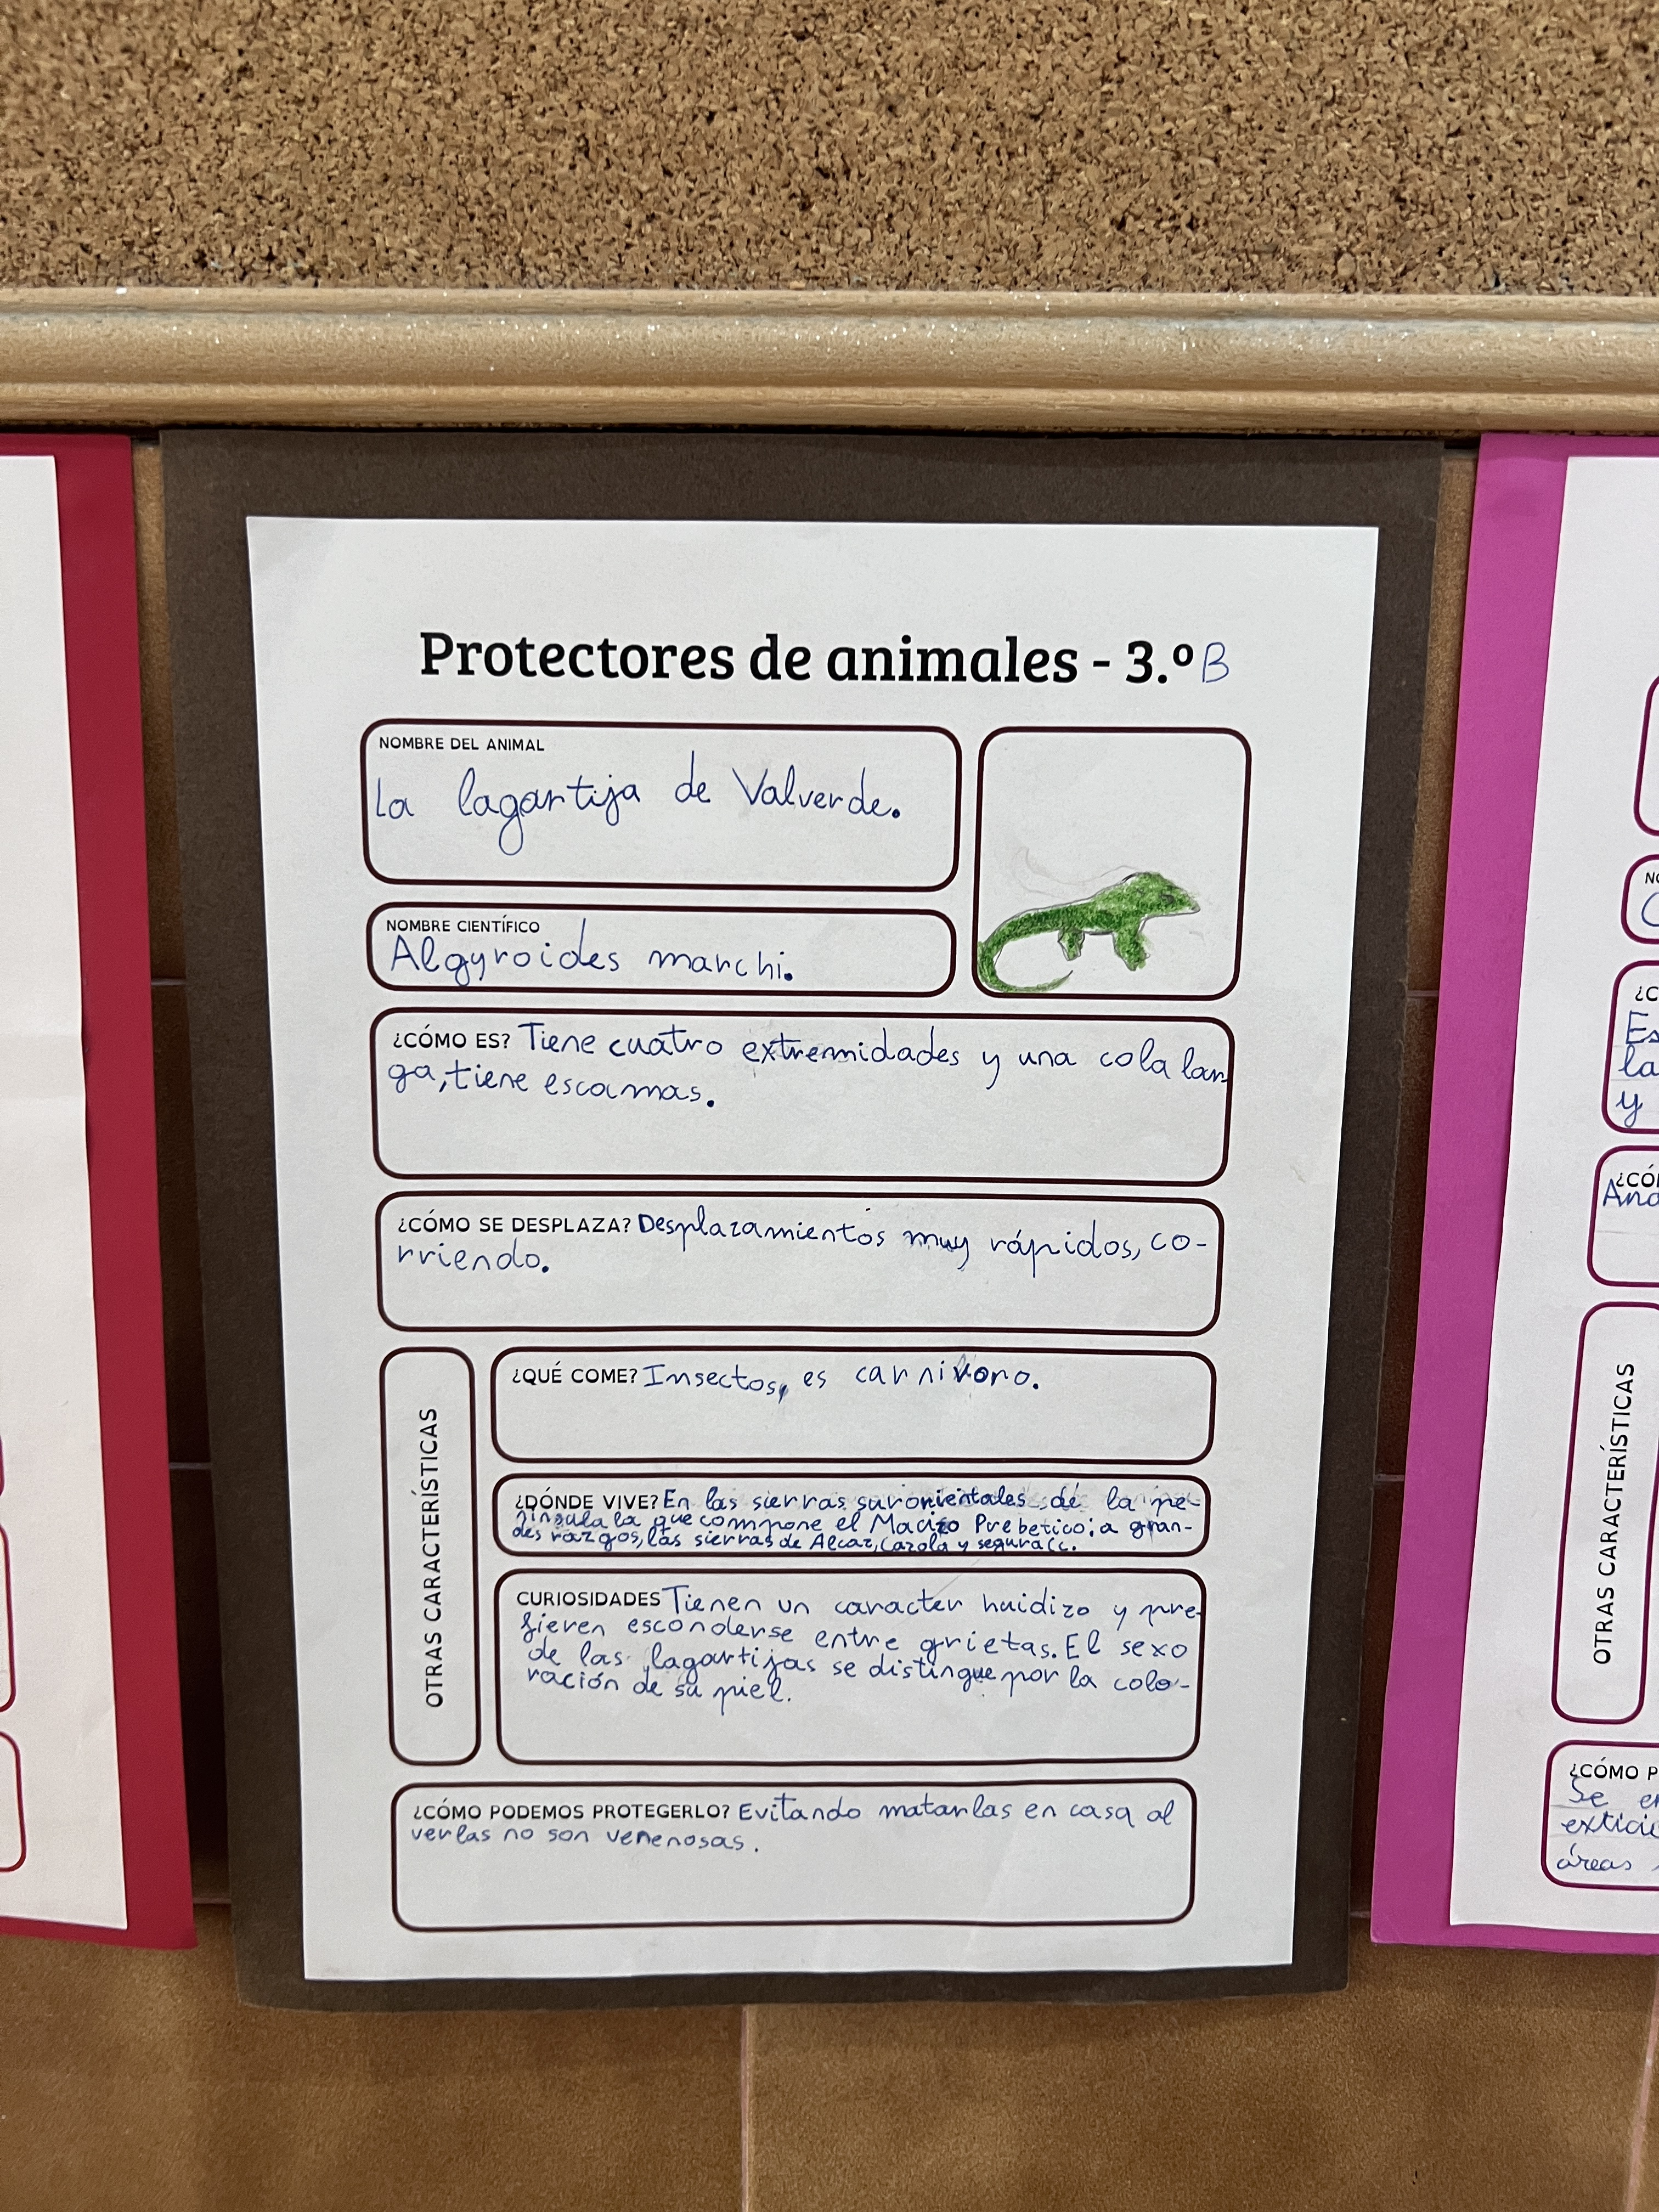 Protectores de animales - 3.º B
NOMBRE DEL ANIMAL
La lagartija de Valverde.
NOMBRE CIENTÍFICO
Algyroides marchi.
¿CÓMO ES? Tiene cuatro extremidades y una cola lan-
ga, tiene escamas.
¿CÓMO SE DESPLAZA? Desplazamientos muy rápidos, co-
rriendo.
OTRAS CARACTERÍSTICAS
¿QUÉ COME? Insectos, es carnivoro.
¿DÓNDE VIVE? En las sierras surorientales de la pe-
nínsula la que compone el Macizo Prebetico; a gran-
des razgos, las sierras de Alcaz, Cazola y segura
CURIOSIDADES Tienen un caracter huidizo y pre-
fieren esconderse entre grietas. El sexo
de las lagartijas se distingue por la colo-
ración de su piel.
¿CÓMO PODEMOS PROTEGERLO? Evitando matarlas en casa al
verlas no son venenosas.
¿C
Es
la
y
¿CÓ
OTRAS CARACTERÍSTICAS
¿CÓMO P
Se
áreas